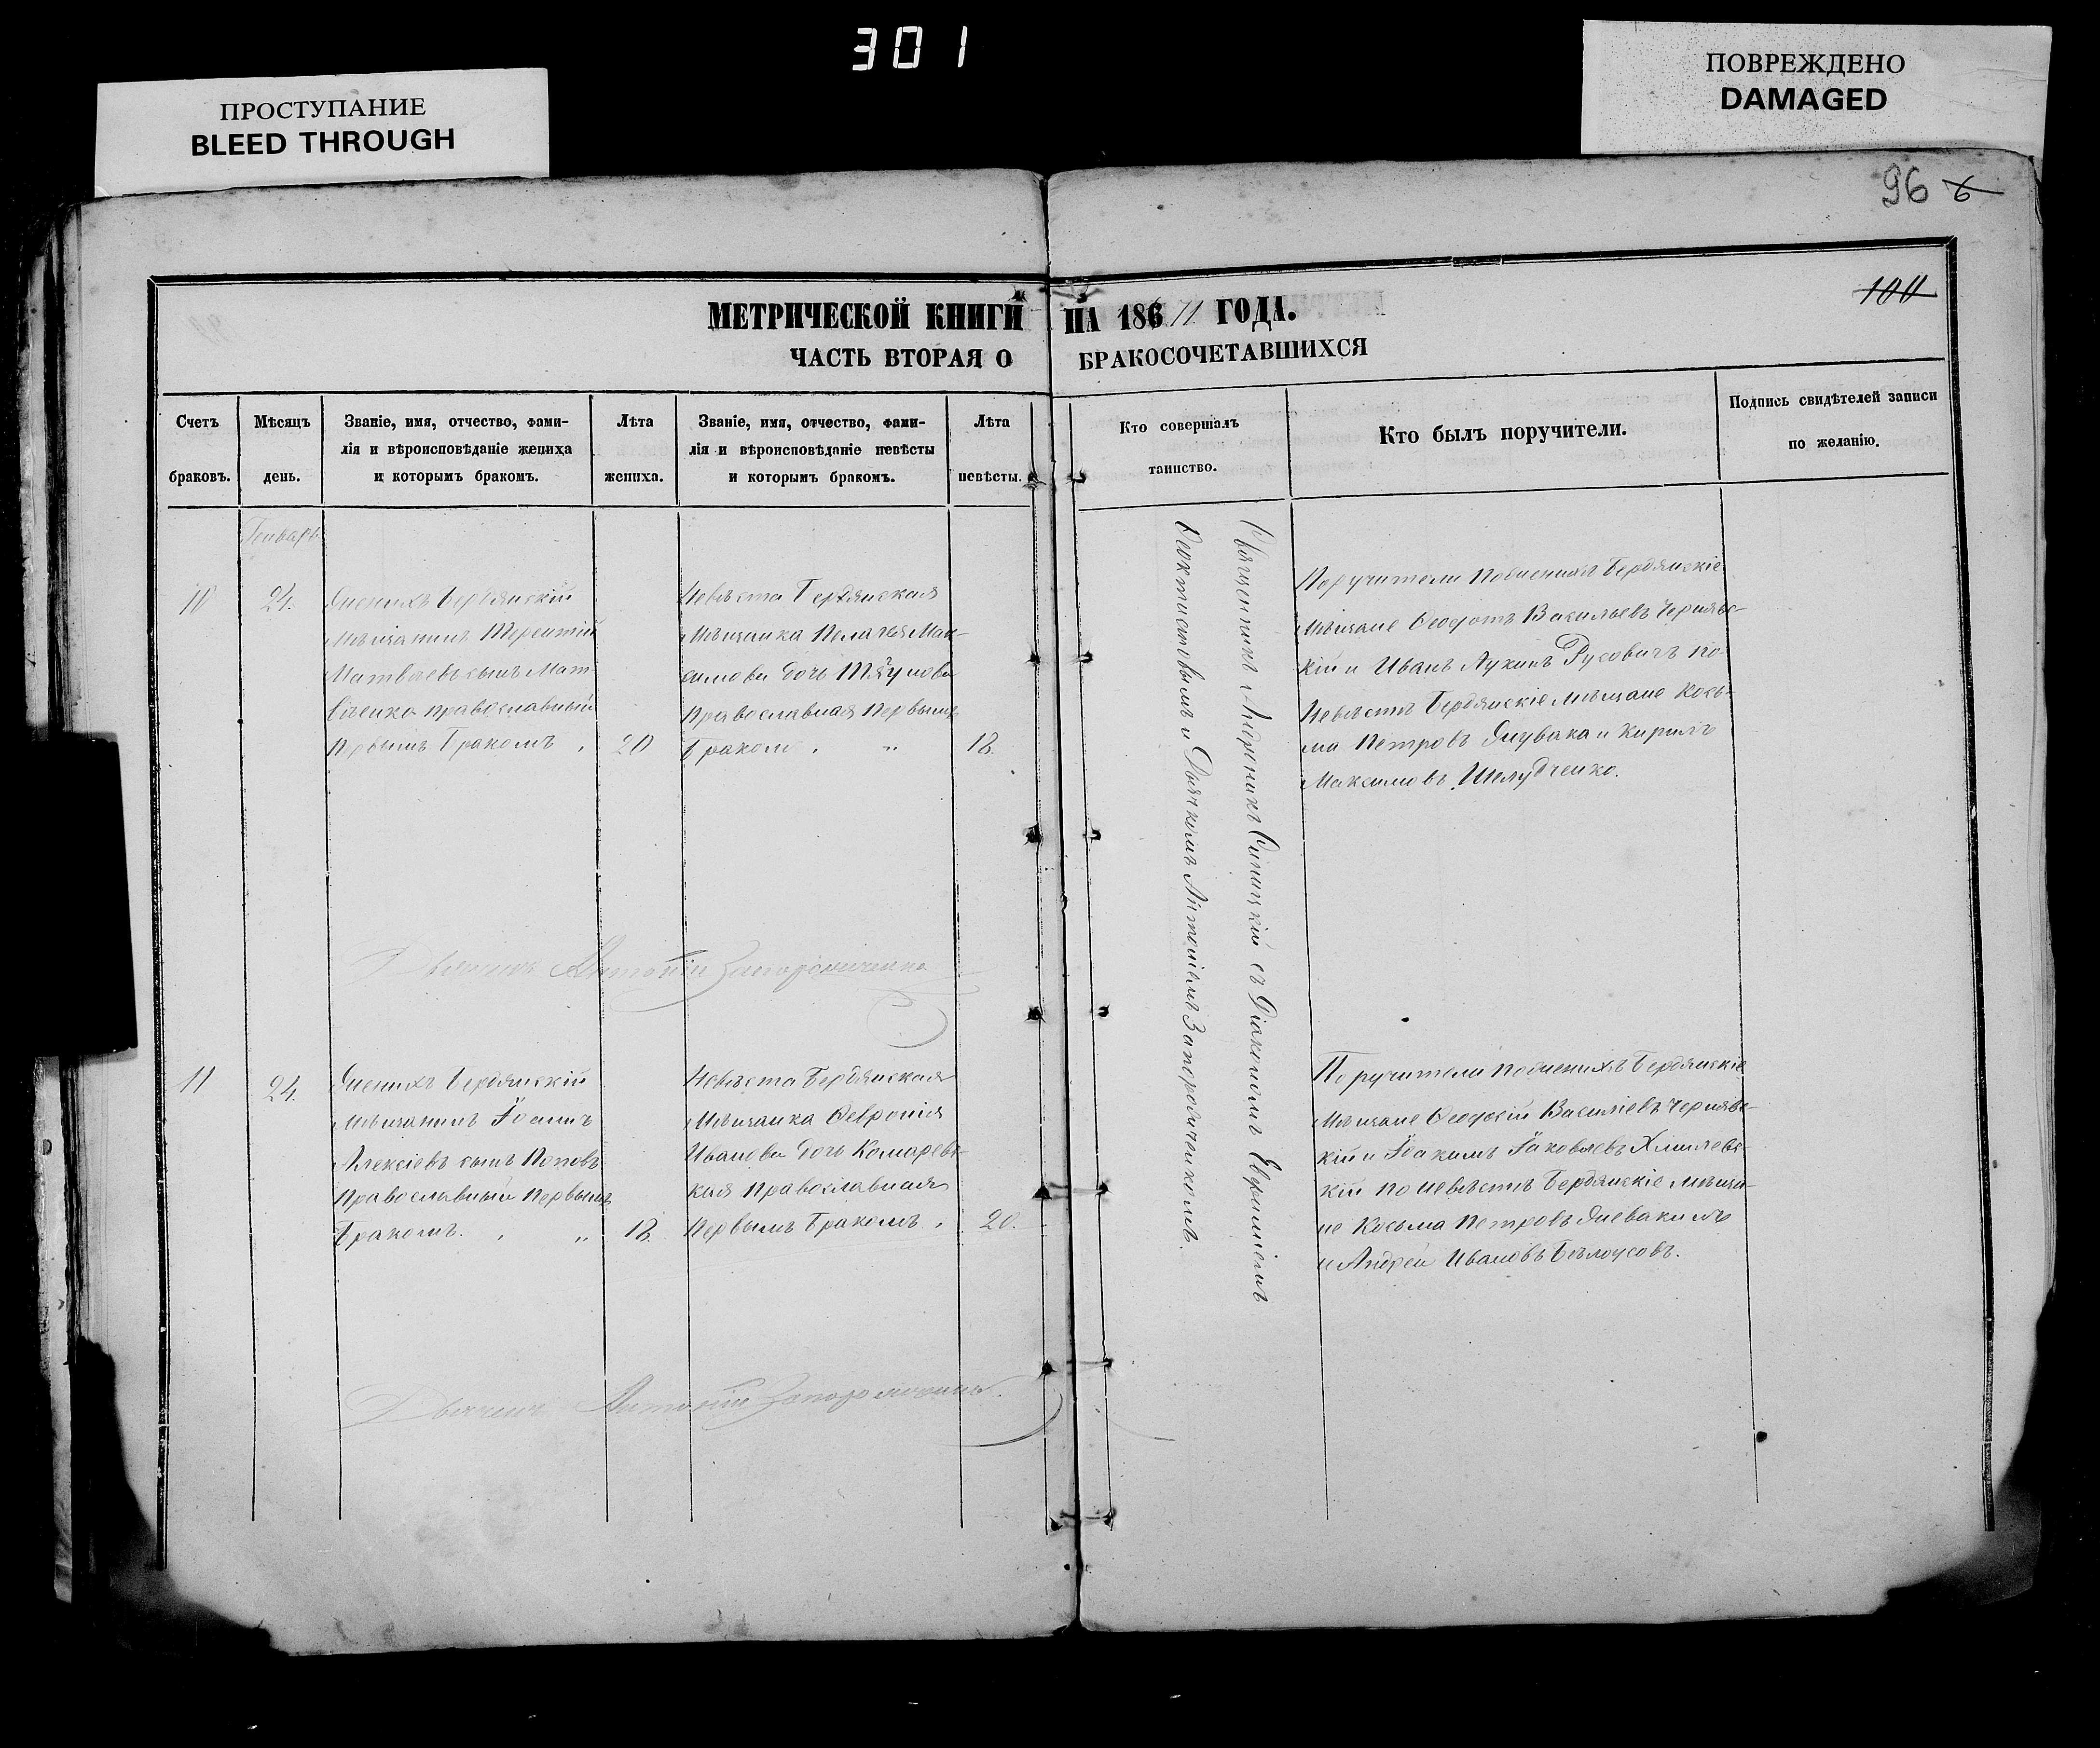 301
ПРОСТУПАНИЕ
BLEED THROUGH
ПОВРЕЖДЕНО
DAMAGED
96
100
МЕТРИЧЕСКОЙ КНИГИ НА 186 ГОДА.
ЧАСТЬ ВТОРАЯ О БРАКОСОЧЕТАВШИХСЯ
Счетъ браковъ.
Мѣсяцъ день.
Званіе, имя, отчество, фами-
лія и вѣроисповѣданіе жениха
и которымъ бракомъ.
Лѣта жениха.
Званіе, имя, отчество, фами-
лія и вѣроисповѣданіе невѣсты
и которымъ бракомъ.
Лѣта невѣсты.
Кто совершалъ
таинство.
Кто былъ поручители.
Подпись свидѣтелей записи
по желанію.
Генварь
10
24.
Женихъ Бердянскій
мѣщанинъ Терентій
Матвѣевъ сынъ Мат-
вѣенко православный
первымъ бракомъ
20
Невѣста Бердянская
мѣщанка Пелагея Мак-
симова дочь
православная первымъ
бракомъ
18.
Священникъ Андроникъ Синицкій съ Діакономъ Евфиміемъ
Феоктистовымъ и Дьячкомъ Антоніемъ Запорожченкомъ.
Поручители по женихѣ Бердянскіе
мѣщане Феодотъ Васильевъ Чернявс-
кій и Иванъ Лукинъ Русовичъ по
невѣстѣ Бердянскіе мѣщане Кось-
ма Петровъ и Кирилъ
Максимовъ Шелудченко.
Дьячекъ Антоній Запорожченко
11
24.
Женихъ Бердянскій
мѣщанинъ Іоаннъ
Алексіевъ сынъ Поповъ
православный первымъ
бракомъ.
18.
Невѣста Бердянская
мѣщанка Февронія
Иванова дочь Комаревс-
кая православная
первымъ бракомъ
20.
Поручители по женихѣ Бердянскіе
мѣщане Феодосій Василіевъ Чернявс-
кій и Іоакимъ Іаковлевъ Хмилевс-
кій по невѣстѣ Бердянскіе мѣща-
не Косьма Петровъ
и Андрей Ивановъ Бѣлоусовъ.
Дьячекъ Антоній Запорожченко.